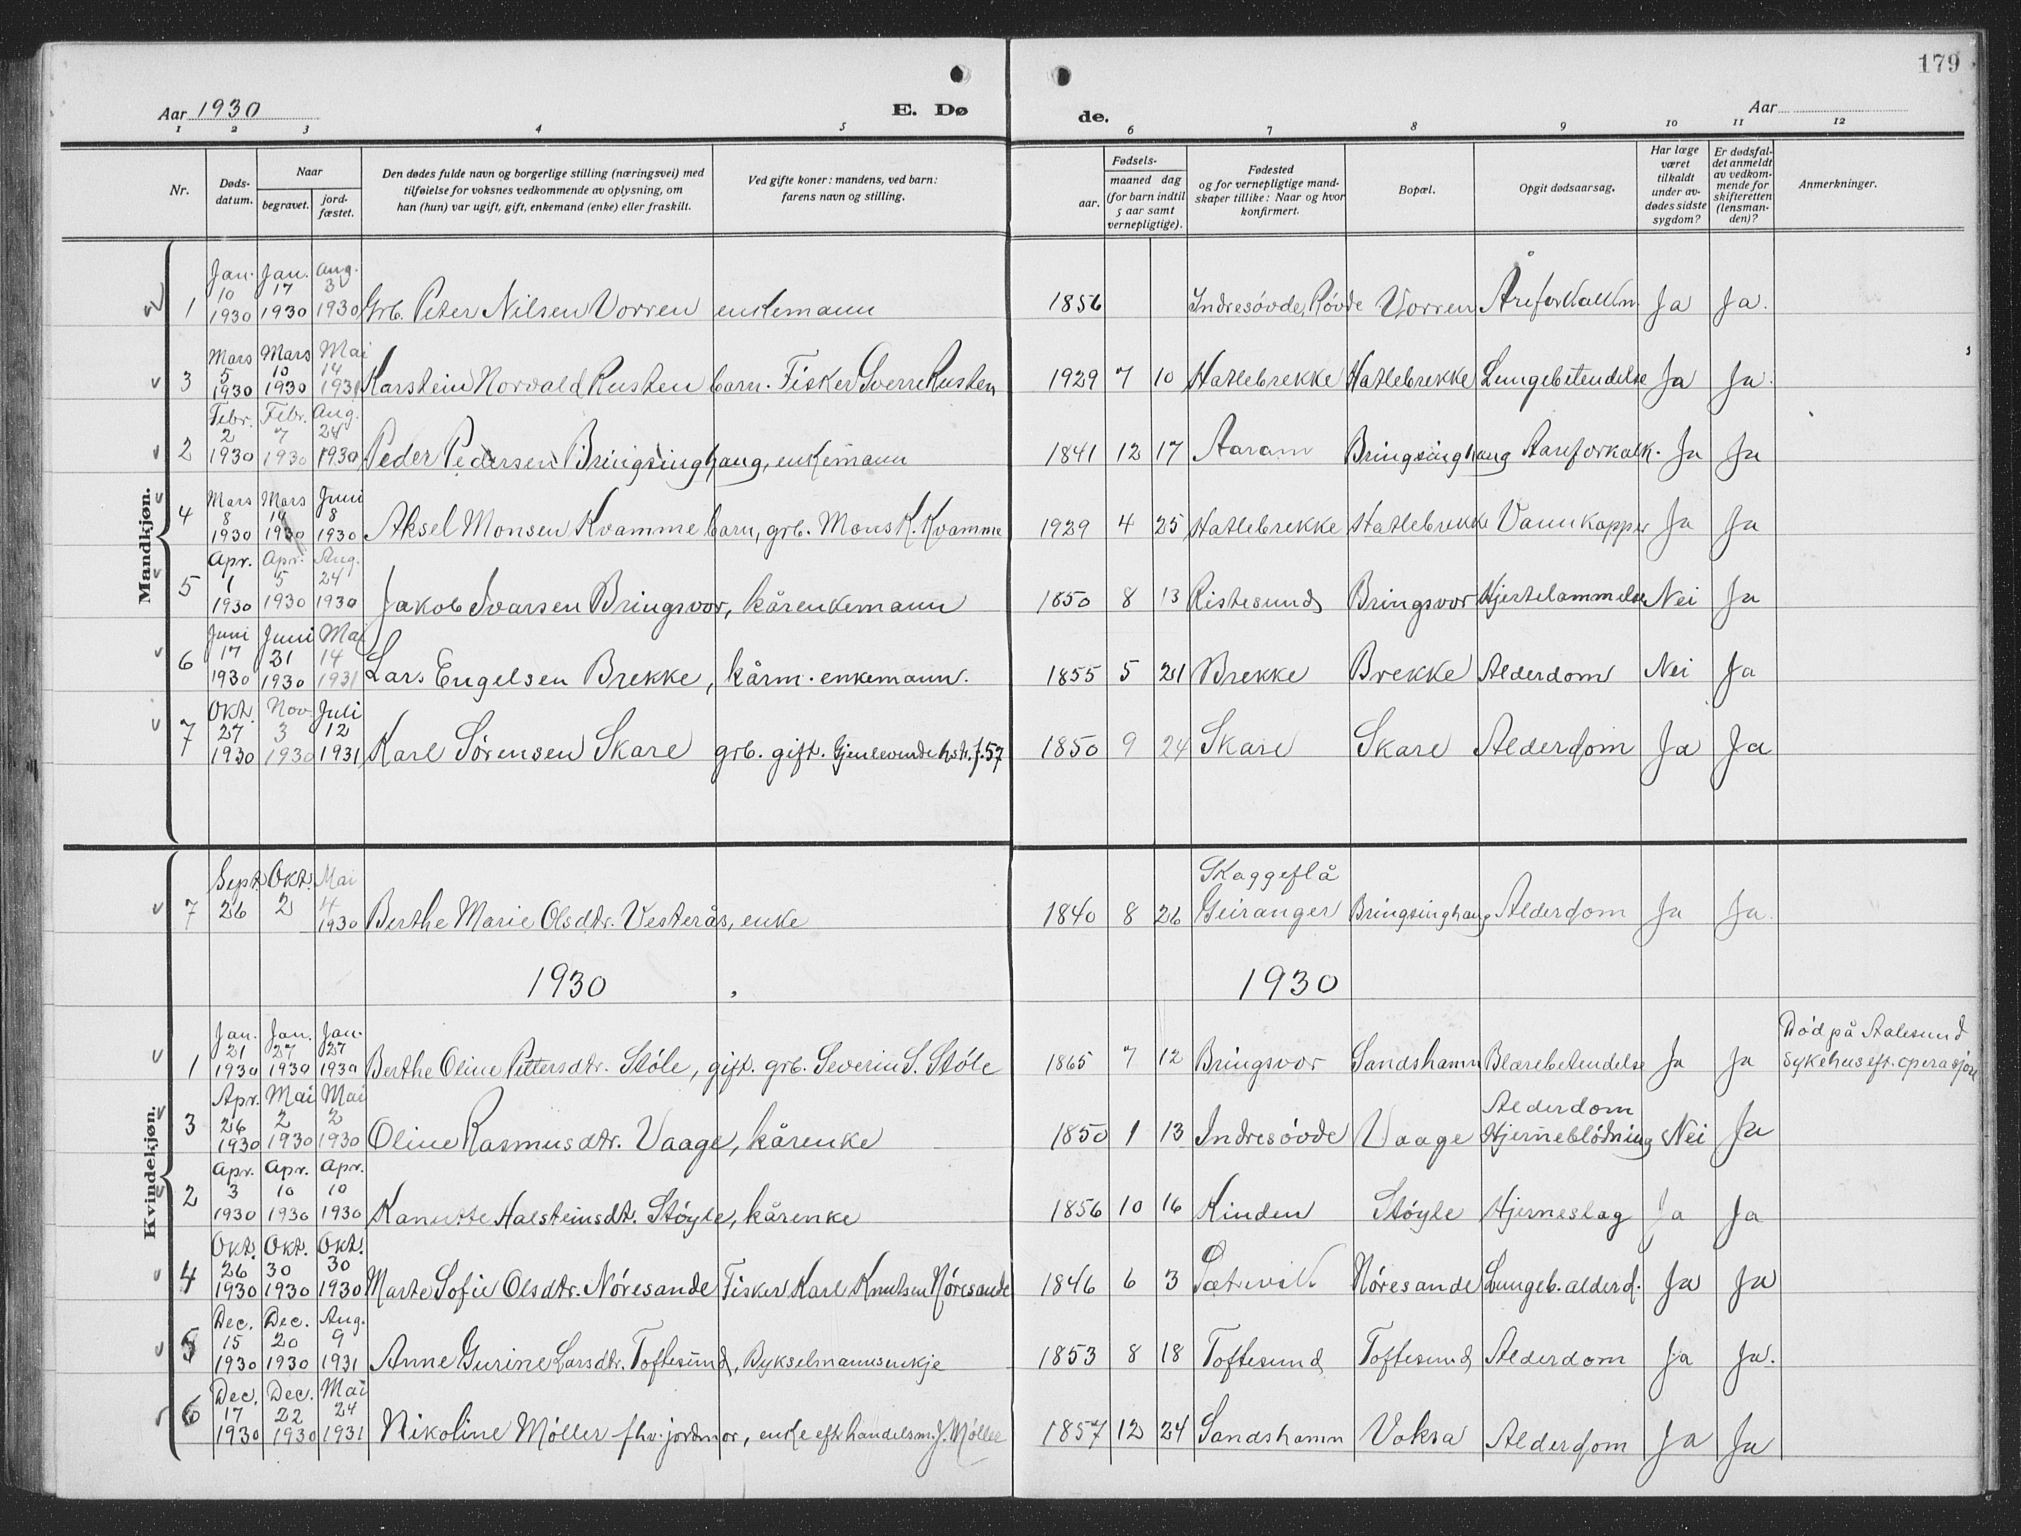 179
Aar 1930 E. Dø de. Aar
1 2 3 4 5 6 7 8 9 10 11 12
Nr. Døds-datum. Naar begravet. jord-fæstet. Den dødes fulde navn og borgerlige stilling (næringsvei) med tilføielse for voksnes vedkommende av oplysning, om han (hun) var ugift, gift, enkemand (enke) eller fraskilt. Ved gifte koner: mandens, ved barn: farens navn og stilling. Fødsels- aar. maaned dag (for barn indtil 5 aar samt vernepligtige). Fødested og for vernepligtige mand-skaper tillike: Naar og hvor konfirmert. Bopæl. Opgit dødsaarsag. Har læge været tilkaldt under av-dødes sidste sygdom? Er dødsfal-det anmeldt av vedkom-mende for skifteretten (lensman-den)? Anmerkninger.
Mandkjøn.
1 Jan. 10 1930 Jan. 17 1930 Aug. 3 1930 Grb. Peter Nilsen Vorren enkemann 1856 Indresøvde, Røvde Vorren Åreforkalkn. Ja Ja.
3 Mars 5 1930 Mars 10 1930 Mai 14 1931 Karstein Norvald Rusten barn. Fisker Sverre Rusten 1929 7 10 Hatlebrekke Hatlebrekke Lungebetendelse Ja Ja.
2 Febr. 2 1930 Febr. 7 1930 Aug. 24 1930 Peder Pedersen Bringsinghaug, enkemann 1841 12 17 Aaram Bringsinghaug Aareforkalk. Ja Ja
4 Mars 8 1930 Mars 14 1930 Juni 8 1930 Aksel Monsen Kvamme barn, grb. Mons K. Kvamme 1929 4 25 Hatlebrekke Hatlebrekke Vannkopper Ja Ja
5 Apr. 1 1930 Apr. 5 1930 Aug. 24 1930 Jakob Ivarsen Bringsvor, kårenkemann 1850 8 13 Ristesund Bringsvor Hjertelammelse Nei Ja
6 Juni 17 1930 Juni 21 1930 Mai 14 1931 Lars Engelsen Brekke, kårm. enkemann. 1855 5 21 Brekke Brekke Alderdom Nei Ja
7 Okt. 27 1930 Nov. 3 1930 Juli 12 1931 Karl Sørensen Skare grb. gift. Gjenlevende hstr. f. 57 1850 9 24 Skare Skare Alderdom Ja Ja
Kvindekjøn.
7 Sept. 26 Okt. 2 Mai 4 1930 Berthe Marie Olsdtr. Vesterås, enke 1840 8 26 Skaggeflå Geiranger Bringsinghaug Alderdom Ja Ja.
1930 1930
1 Jan. 21 1930 Jan. 27 1930 Jan. 27 1930 Berthe Oline Pettersdtr. Støle, gift. grb. Severin S. Støle 1865 7 12 Bringsvor Sandshamn Blærebetendelse Ja Ja Død på Aalesund sykehus eft. operasjon
3 Apr. 26 1930 Mai 2 1930 Mai 2 1930 Oline Rasmusdtr. Vaage, kårenke 1850 1 13 Indresøvde Vaage Alderdom Hjerneblødning Nei Ja
2 Apr. 3 1930 Apr. 10 1930 Apr. 10 1930 Kanutte Halsteinsdt. Støyle, kårenke 1856 10 16 Kinden Støyle Hjerneslag Ja Ja
4 Okt. 26 1930 Okt. 30 1930 Okt. 30 1930 Marte Sofie Olsdtr. Nøresande Fisker Karl Knutsen Nøresande 1846 6 3 Nøresande Lungeb. alderd. Ja Ja
5 Dec. 15 1930 Dec. 20 1930 Aug. 9 1931 Anne Gurine Larsdtr. Toftesund, Bykselmannsenkje 1853 8 18 Toftesund Toftesund Alderdom Ja Ja.
6 Dec. 17 1930 Dec. 22 1930 Mai 24 1931 Nikoline Møller fhv. jordmor, enke eft. handelsm. J. Møller 1857 12 24 Sandshamn Voksa Alderdom Ja Ja